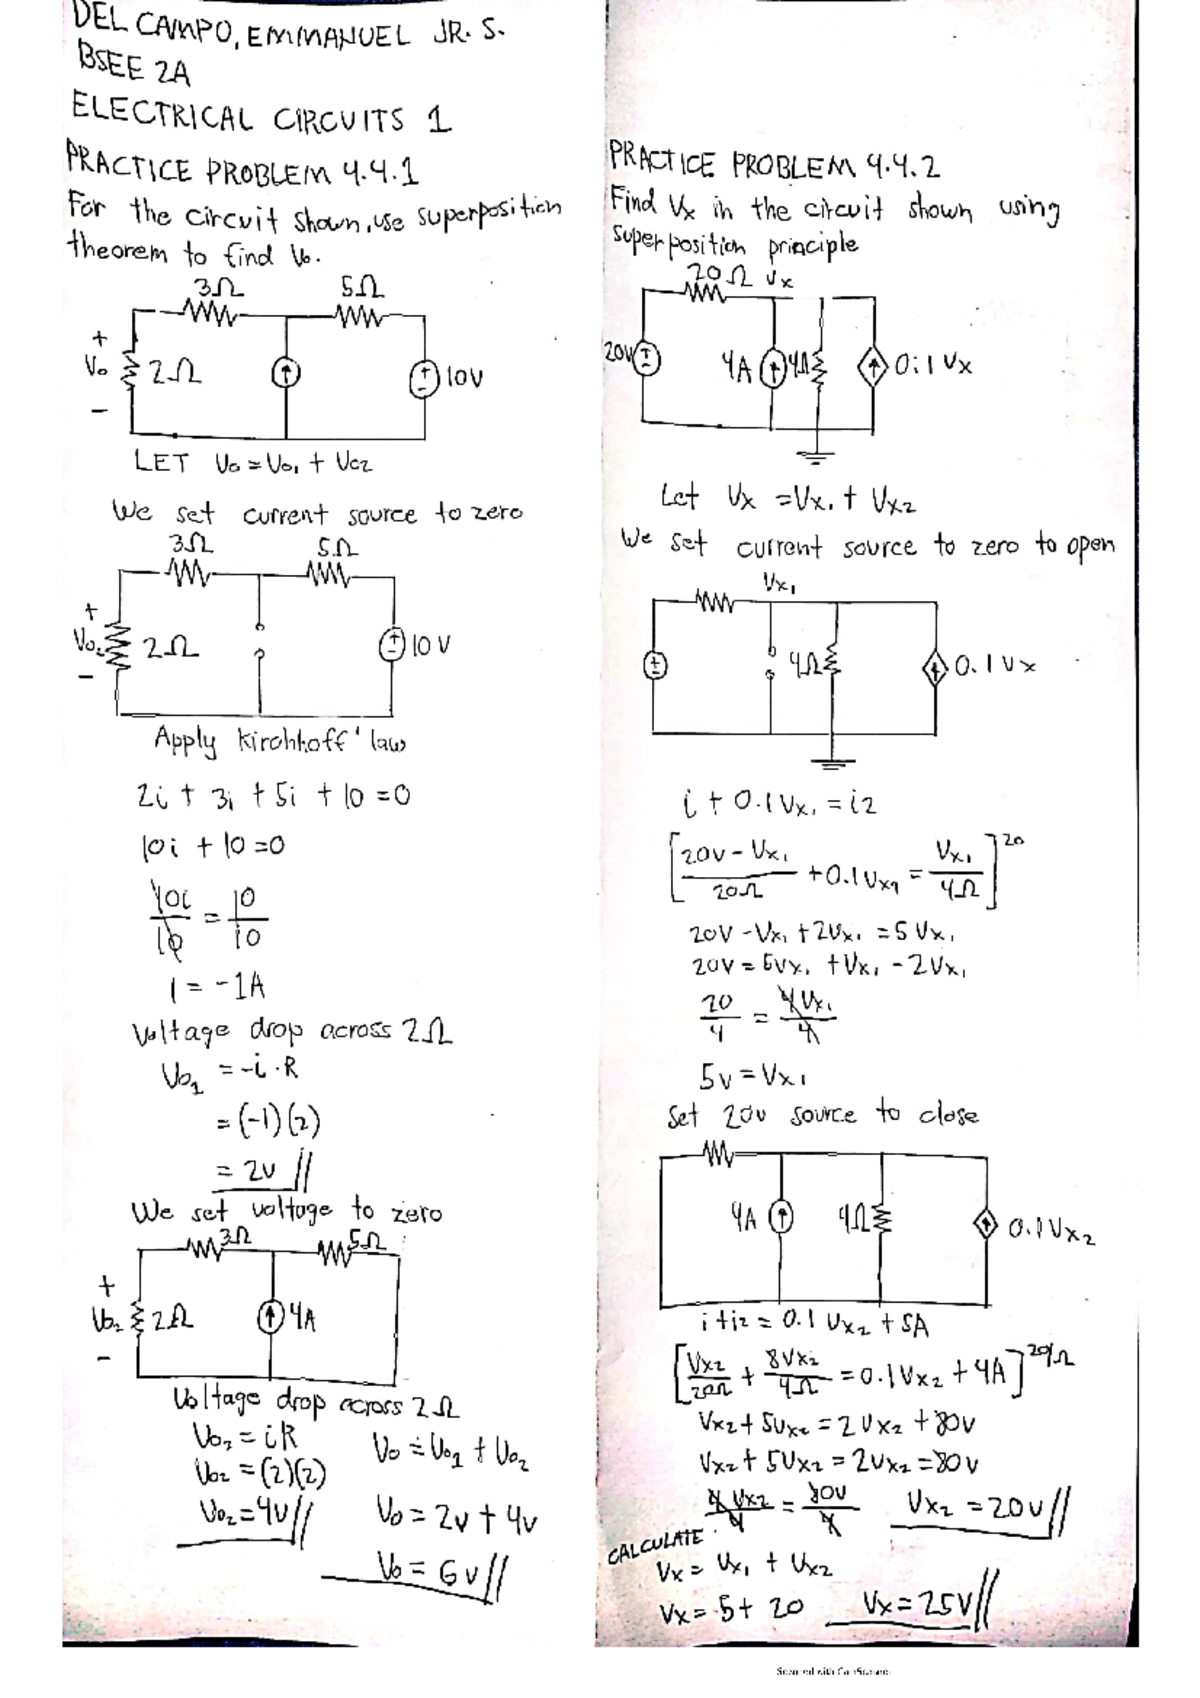 DEL CAMPO, EMMANUEL JR. S.
BSEE 2A
ELECTRICAL CIRCUITS 1
PRACTICE PROBLEM 4.4.1
For the circuit shown, use superposition
theorem to find Vo.
3Ω 5Ω
+
Vo 2Ω 10V
-
LET Vo = Vo1 + Vo2
We set current source to zero
3Ω 5Ω
+
Vo2 2Ω 10V
-
Apply Kirchhoff' law
2i + 3i + 5i + 10 = 0
10i + 10 = 0
10i/10 = 10/10
I = -1A
Voltage drop across 2Ω
Vo1 = -i·R
= (-1)(2)
= 2V //
We set voltage to zero
3Ω 5Ω
+
Vo2 2Ω 4A
-
Voltage drop across 2Ω
Vo2 = iR
Vo2 = (2)(2)
Vo2 = 4V //
Vo = Vo1 + Vo2
Vo = 2V + 4V
Vo = 6V //
PRACTICE PROBLEM 4.4.2
Find Vx in the circuit shown using
superposition principle
20Ω Vx
20V 4A 4Ω 0.1Vx
Let Vx = Vx1 + Vx2
We set current source to zero to open
Vx1
4Ω 0.1Vx
i + 0.1Vx1 = i2
[20V - Vx1/20Ω + 0.1Vx1 = Vx1/4Ω]20
20V - Vx1 + 2Vx1 = 5Vx1
20V = 5Vx1 + Vx1 - 2Vx1
20/4 = 4Vx1/4
5V = Vx1
Set 20V source to close
4A 4Ω 0.1Vx2
i+i2 = 0.1Vx2 + 5A
[Vx2/20Ω + 8Vx2/4Ω = 0.1Vx2 + 4A]20Ω
Vx2 + 5Vx2 = 2Vx2 + 80V
Vx2 + 5Vx2 = 2Vx2 = 80V
4Vx2/4 = 80V/4 Vx2 = 20V //
CALCULATE:
Vx = Vx1 + Vx2
Vx = 5 + 20 Vx = 25V //
Scanned with CamScanner